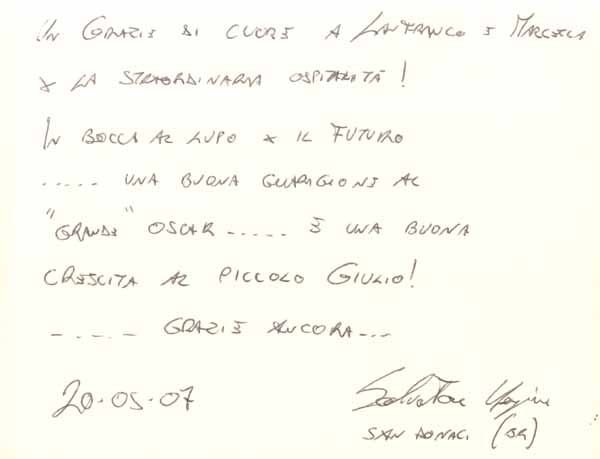 UN GRAZIE DI CUORE A LANFRANCO E MARCELA
X LA STRAORDINARIA OSPITALITÀ!
IN BOCCA AL LUPO X IL FUTURO
..... UNA BUONA GUARIGIONE AL
"GRANDE" OSCAR ..... E UNA BUONA
CRESCITA AL PICCOLO GIULIO!
..... GRAZIE ANCORA...
20-05-07
Salvatore
SAN DONACI (BR)